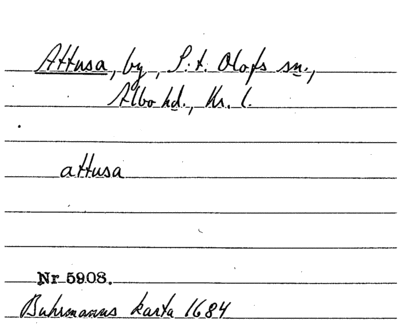 Attusa, by, S:t. Olofs sn.,
Albo hd., Kr. l.
attusa
Nr 5908.
Buhrmanns karta 1684